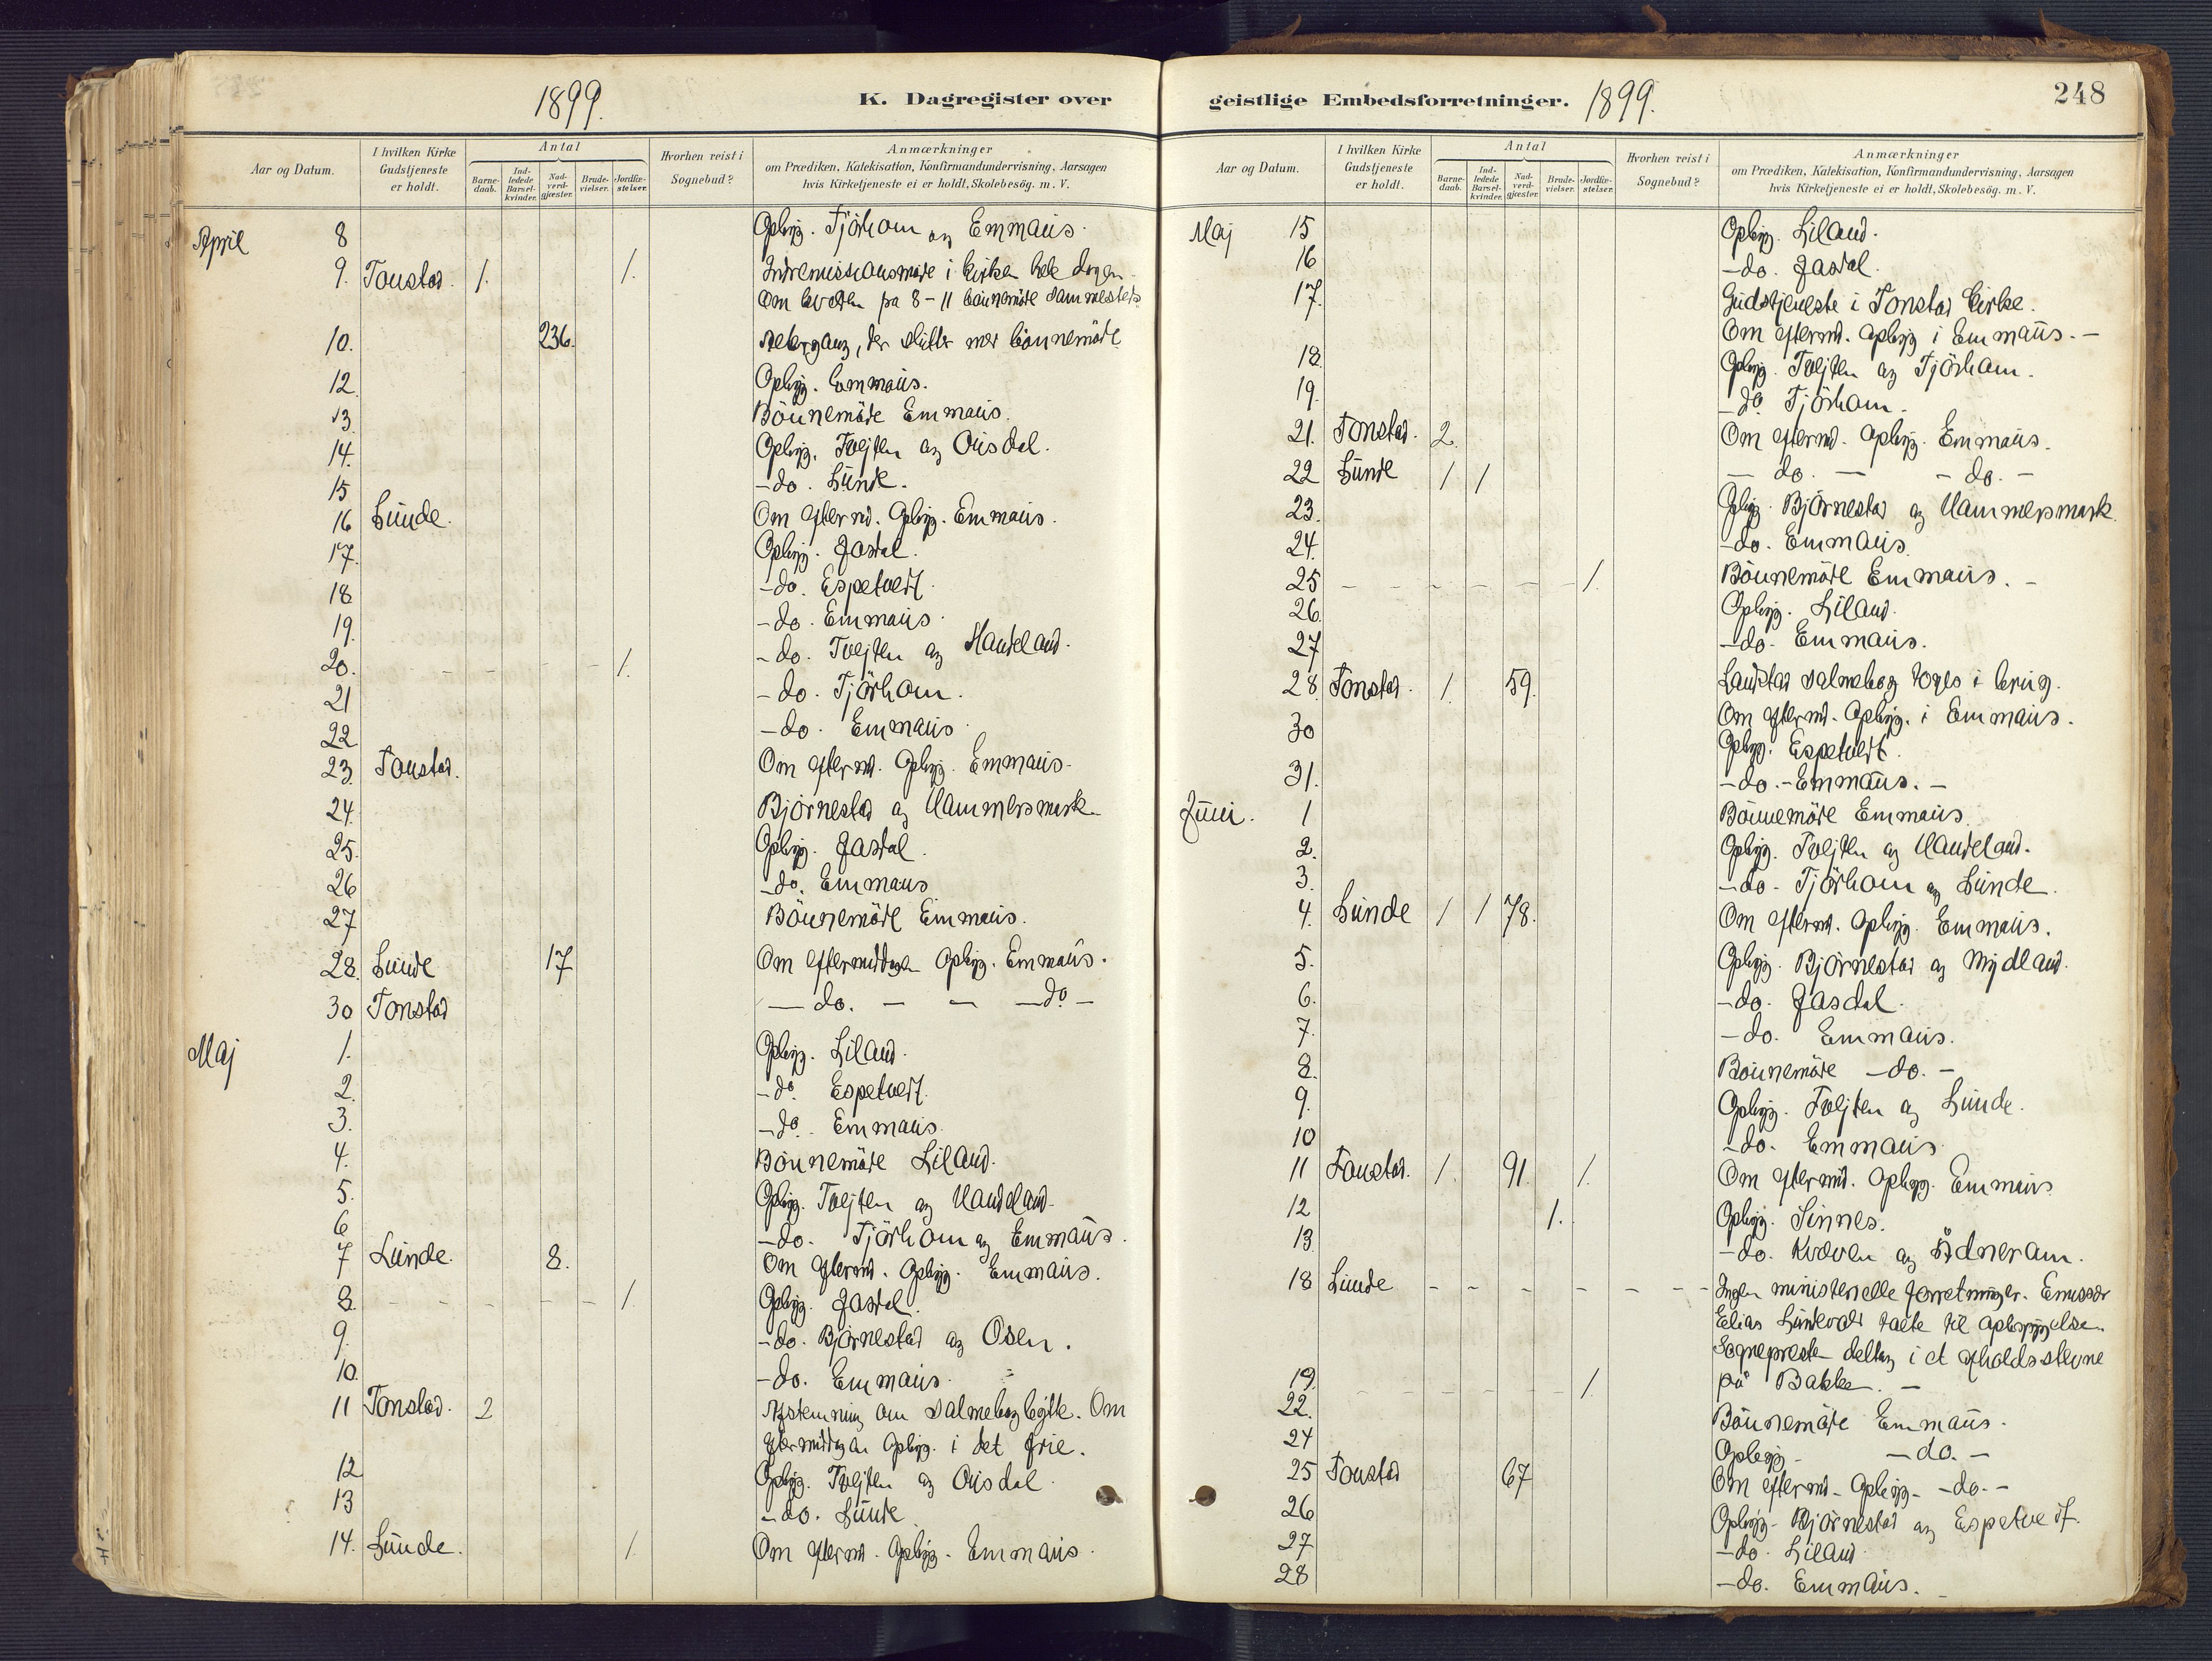 1899.
K. Dagregister over
Aar og Datum.
I hvilken Kirke Gudstjeneste er holdt.
Antal
Barne-daab.
Ind-ledede Barsel-kvinder.
Nad-verd-gjæster.
Brude-vielser.
Jordfæ-stelser.
Hvorhen reist i Sognebud?
Anmærkninger
om Prædiken, Katekisation, Konfirmandundervisning, Aarsagen
hvis Kirketjeneste ei er holdt, Skolebesøg. m. V.
April 8 Opbyg. Tjörhom og Emmaus.
9. Tonstad. 1. 1. Indremissionsmöde i kirken hele dagen.
Om kvelden fra 8-11 bönnemöde sammesteds
10. 236. Altergang, der slutter med bönnemöde
12. Opbyg. Emmaus.
13. Bönnemöde Emmaus.
14. Opbyg. Tveiten og Ousdal.
15 -do. Lunde.
16 Lunde. Om efterm. Opbyg. Emmaus.
17. Opbyg. Josdal.
18 -do. Espetveit.
19. -do. Emmaus.
20. - - - - - 1. -do. Tveiten og Haudeland.
21 -do. Tjörhom.
22 -do. Emmaus.
23. Tonstad. Om efterm. Opbyg. Emmaus.
24. Björnestad og Hammersmark.
25. Opbyg. Josdal.
26 -do. Emmaus
27 Bönnemöde Emmaus.
28. Lunde 17 Om eftermiddagen Opbyg. Emmaus.
30 Tonstad - do. - - - do -
Maj 1. Opbyg. Liland.
2. -do Espetveit.
3. -do. Emmaus.
4. Bönnemöde Liland.
5. Opbyg. Tveiten og Haudeland.
6 -do. Tjörhom og Emmaus.
7 Lunde. 8. Om efterm. Opbyg. Emmaus.
8. - - - - - 1. Opbyg. Josdal.
9. -do. Björnestad og Osen.
10. -do. Emmaus.
11 Tonstad. 2 Afstemning om salmebogbytte. Om
eftermiddagen Opbyg. i det frie.
12 Opbyg. Tveiten og Ousdal
13 -do. Lunde
14. Lunde. 1. Om efterm. Opbyg. Emmaus.
geistlige Embedsforretninger. 1899.
248
Aar og Datum.
I hvilken Kirke Gudstjeneste er holdt.
Antal
Barne-daab.
Ind-ledede Barsel-kvinder.
Nad-verd-gjæster.
Brude-vielser.
Jordfæ-stelser.
Hvorhen reist i Sognebud?
Anmærkninger
om Prædiken, Katekisation, Konfirmandundervisning, Aarsagen
hvis Kirketjeneste ei er holdt, Skolebesög. m. V.
Maj 15 Opbyg. Liland.
16 -do. Josdal.
17. Gudstjeneste i Tonstad kirke.
Om efterm. Opbyg i Emmaus. -
18. Opbyg. Tveiten og Tjörhom.
19. -do Tjörhom.
21. Tonstad. 2. Om efterm. Opbyg. Emmaus.
22 Lunde 1 1 - do. - - do. -
23. Opbyg. Björnestad og Hammersmark.
24. -do. Emmaus.
25 - - - - - - 1. Bönnemöde Emmaus. -
26. Opbyg. Liland.
27 -do. Emmaus.
28 Tonstad. 1. 59. Landstad salmebog toges i brug.
Om efterm. Opbyg. i Emmaus.
30 Opbyg. Espetveit.
31. -do.- Emmaus. -
Juni. 1 Bönnemöde Emmaus.
2. Opbyg. Tveiten og Haudeland.
3. -do- Tjörhom og Lunde.
4. Lunde 1 1 78. Om efterm. Opbyg. Emmaus.
5. Opbyg. Björnestad og Mydland.
6. -do. Josdal.
7. -do. Emmaus.
8. Bönnemöde -do. -
9. Opbyg. Tveiten og Lunde.
10 -do. Emmaus.
11 Tonstad. 1. 91. 1. Om efterm. Opbyg. Emmaus
12 1. Opbyg. Sinnes.
13. -do. Kvæven og Ådneram.
18 Lunde - - - - - - - Ingen ministerielle forretninger. Emissær
Elias Lindevold talte til opbyggelse.
Sognepresten deltog i et afholdsstevne
19. - - - - - 1. på Bakke. -
22. Bönnemöde Emmaus.
24 Opbyg - -do. -
25 Tonstad 67 Om efterm- Opbyg- -do.-
26 Opbyg- Björnestad og Espetveit.
27 -do. Liland
28 -do. Emmaus. -